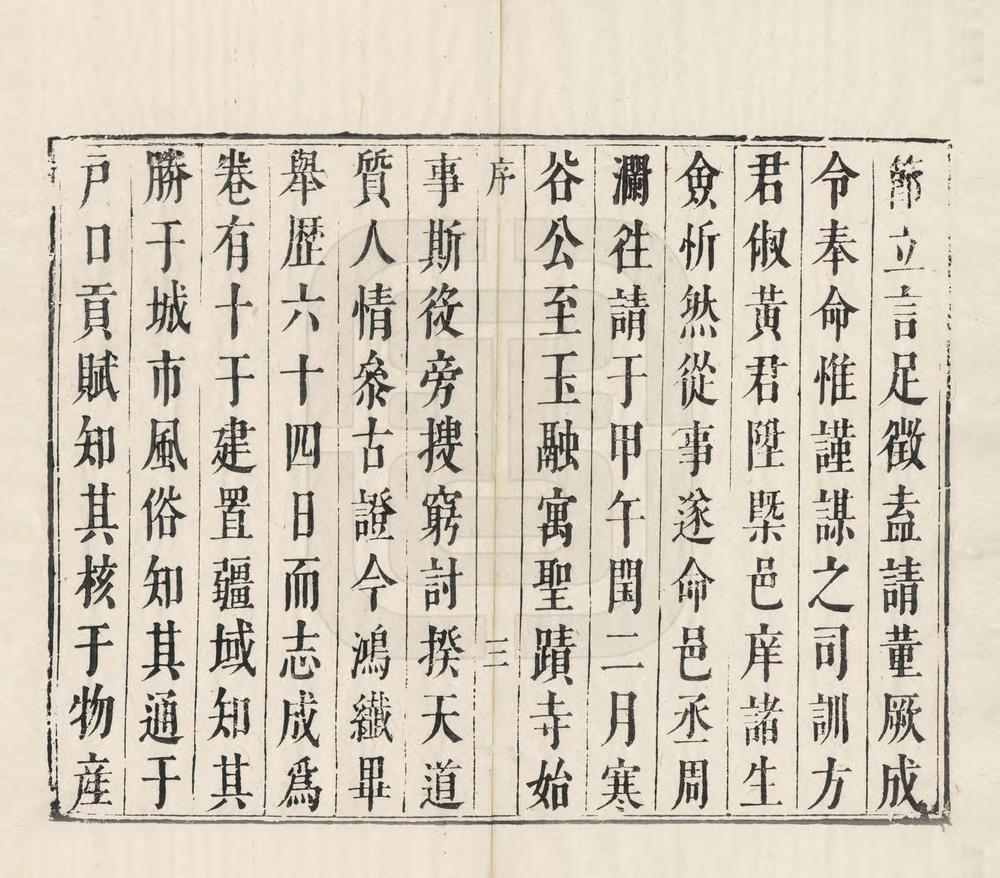 節立言足徵盍請董厥成
令奉命惟謹謀之司訓方
君俶黃君陞槩邑庠諸生
僉忻然從事遂命邑丞周
瀾往請于甲午閏二月寒
谷公至玉融寓聖蹟寺始
序 三
事斯役旁搜窮討揆天道
質人情叅古證今鴻纖畢
舉歷六十四日而志成爲
卷有十于建置疆域知其
勝于城市風俗知其通于
戶口貢賦知其核于物産